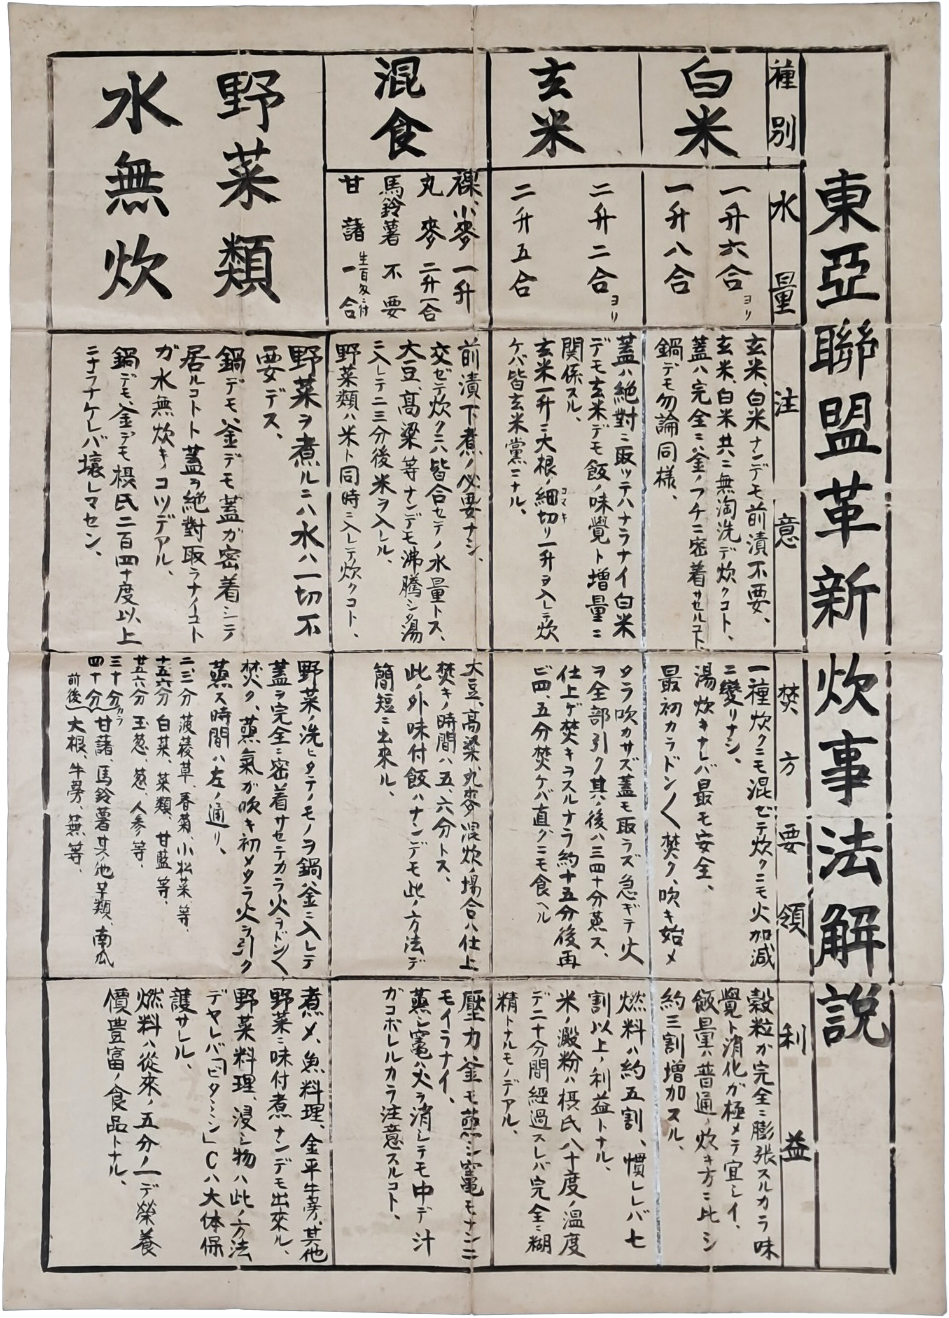 東亞聯盟革新炊事法解説
種別
水量
注意
焚方要領
利益
白米
一升六合ヨリ
一升八合
玄米
二升二合ヨリ
二升五合
混食
裸、小麥 一升
丸麥 二升一合
馬鈴薯 不要
甘諸 一合
野菜類
水無炊
玄米、白米ナンデモ前漬不要、
玄米、白米共ニ無淘洗デ炊クコト、
蓋ハ完全ニ釜ノフチニ密着サセルコト
鍋デモ勿論同様、
蓋ハ絶對ニ取ッテハナラナイ白米
デモ玄米デモ飯ノ味覺ト増量ニ
関係スル、
玄米一升ニ大根ノ細切リ一升ヲ入レテ炊
ケバ皆玄米黨ニナル、
コマキ
前漬下煮ノ必要ナシ、
交ゼテ炊クニハ皆合セテノ水量トス、
大豆、高粱等ナンデモ沸騰シタ湯
ニ入レテ二三分後米ヲ入レル、
野菜類ハ米ト同時ニ入レテ炊クコト、
野菜ヲ煮ルニハ水ハ一切不
要デス、
鍋デモ、釜デモ蓋ガ密着シテ
居ルコトト蓋ヲ絶對取ラナイコト
ガ水無炊キノコツデアル、
鍋デモ、釜デモ摂氏二百四十度以上
ニナラナケレバ壊レマセン、
一種炊クニモ混ゼテ炊クニモ火加減
ニ變リナシ、
湯炊キナレバ最モ安全、
最初カラドン〱焚ク、吹キ始メ
タラ吹カサズ蓋モ取ラズ急ギテ火
ヲ全部引ク其ノ後ハ三四十分蒸ス、
仕上ゲ焚キヲスルナラ約十五分後再
ビ四、五分焚ケバ直グニモ食ヘル
大豆、高粱、丸麥、混炊ノ場合ハ仕上
焚キノ時間ハ五、六分トス、
此ノ外味付飯ハナンデモ此ノ方法デ
簡短ニ出來ル、
野菜ノ洗ヒタテノモノヲ鍋釜ニ入レテ
蓋ヲ完全ニ密着サセテカラ火ヲドン〱
焚ク、蒸氣ガ吹キ初メタラ火ヲ引ク
蒸ス時間ハ左ノ通リ、
二、三分 菠薐草、春菊、小松菜等、
十五六分 白菜、菜類、甘藍等、
廿五六分 玉葱、葱、人参等、
三十分カラ四十分 甘諸、馬鈴薯其ノ他芋類、南瓜
前後 大根、牛蒡、蕪、等、
穀粒ガ完全ニ膨張スルカラ味
覺ト消化ガ極メテ宜シイ、
飯量ハ普通ノ炊キ方ニ比シ
約三割増加スル、
燃料ハ約五割、慣レレバ七
割以上ノ利益トナル、
米ノ澱粉ハ摂氏八十度ノ温度
デ二十分間經過スレバ完全ニ糊
精トナルモノデアル、
壓力釜モ蒸シ竃モナンニ
モイラナイ、
蒸シ竃ハ火ヲ消シテモ中デ汁
ガコボレルカラ注意スルコト、
煮〆、魚料理、金平牛蒡、其他
野菜ニ味付煮ナンデモ出來ル、
野菜料理、浸シ物ハ此ノ方法
デヤレバ「ビタミン」Cハ大体保
護サレル、
燃料ハ從來ノ五分ノ一デ榮養
價豊富ノ食品トナル、